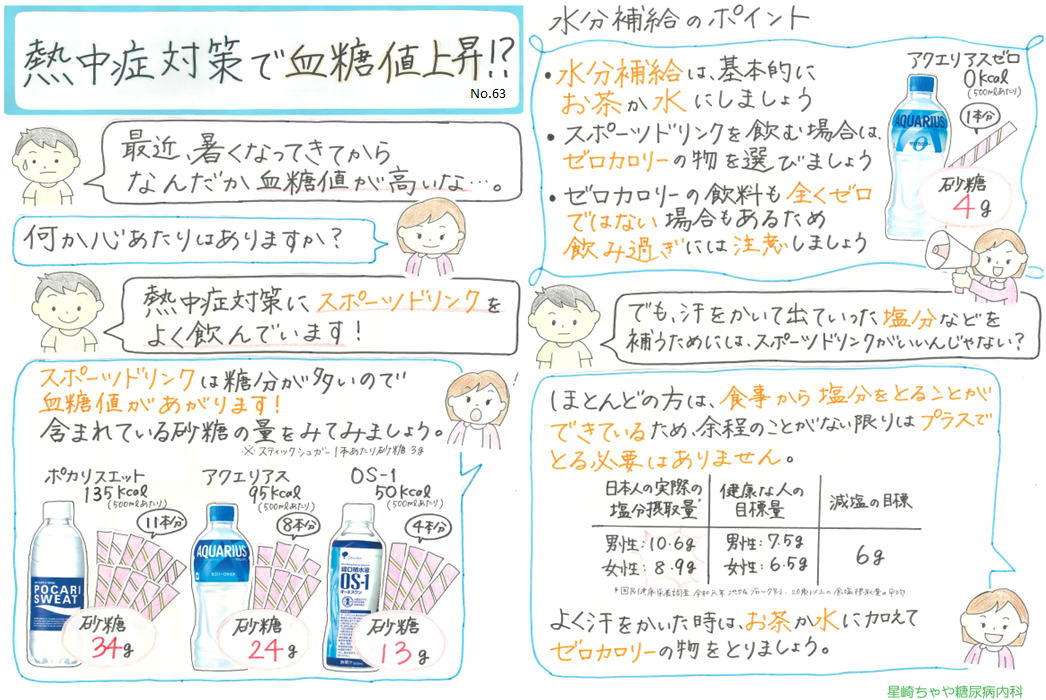 熱中症対策で血糖値上昇!?
No.63
最近、暑くなってきてから
なんだか血糖値が高いな…。
何か心あたりはありますか?
熱中症対策にスポーツドリンクを
よく飲んでいます!
スポーツドリンクは糖分が多いので
血糖値があがります!
含まれている砂糖の量をみてみましょう。
※スティックシュガー1本あたり砂糖3g
ポカリスエット
135kcal
(500mlあたり)
11本分
POCARI
SWEAT
砂糖
34g
アクエリアス
95kcal
(500mlあたり)
8本分
AQUARIUS
砂糖
24g
OS-1
50kcal
(500mlあたり)
4本分
経口補水液
OS-1
オーエスワン
砂糖
13g
水分補給のポイント
・水分補給は、基本的に
お茶か水にしましょう
・スポーツドリンクを飲む場合は、
ゼロカロリーの物を選びましょう
・ゼロカロリーの飲料も全くゼロ
ではない場合もあるため
飲み過ぎには注意しましょう
アクエリアスゼロ
0kcal
(500mlあたり)
1本分
AQUARIUS
砂糖
4g
でも、汗をかいて出ていった塩分などを
補うためには、スポーツドリンクがいいんじゃない?
ほとんどの方は、食事から塩分をとることが
できているため、余程のことがない限りはプラスで
とる必要はありません。
日本人の実際の
塩分摂取量*
健康な人の
目標量
減塩の目標
男性:10.6g
女性:8.9g
男性:7.5g
女性:6.5g
6g
よく汗をかいた時は、お茶か水に加えて
ゼロカロリーの物をとりましょう。
星崎ちゃや糖尿病内科